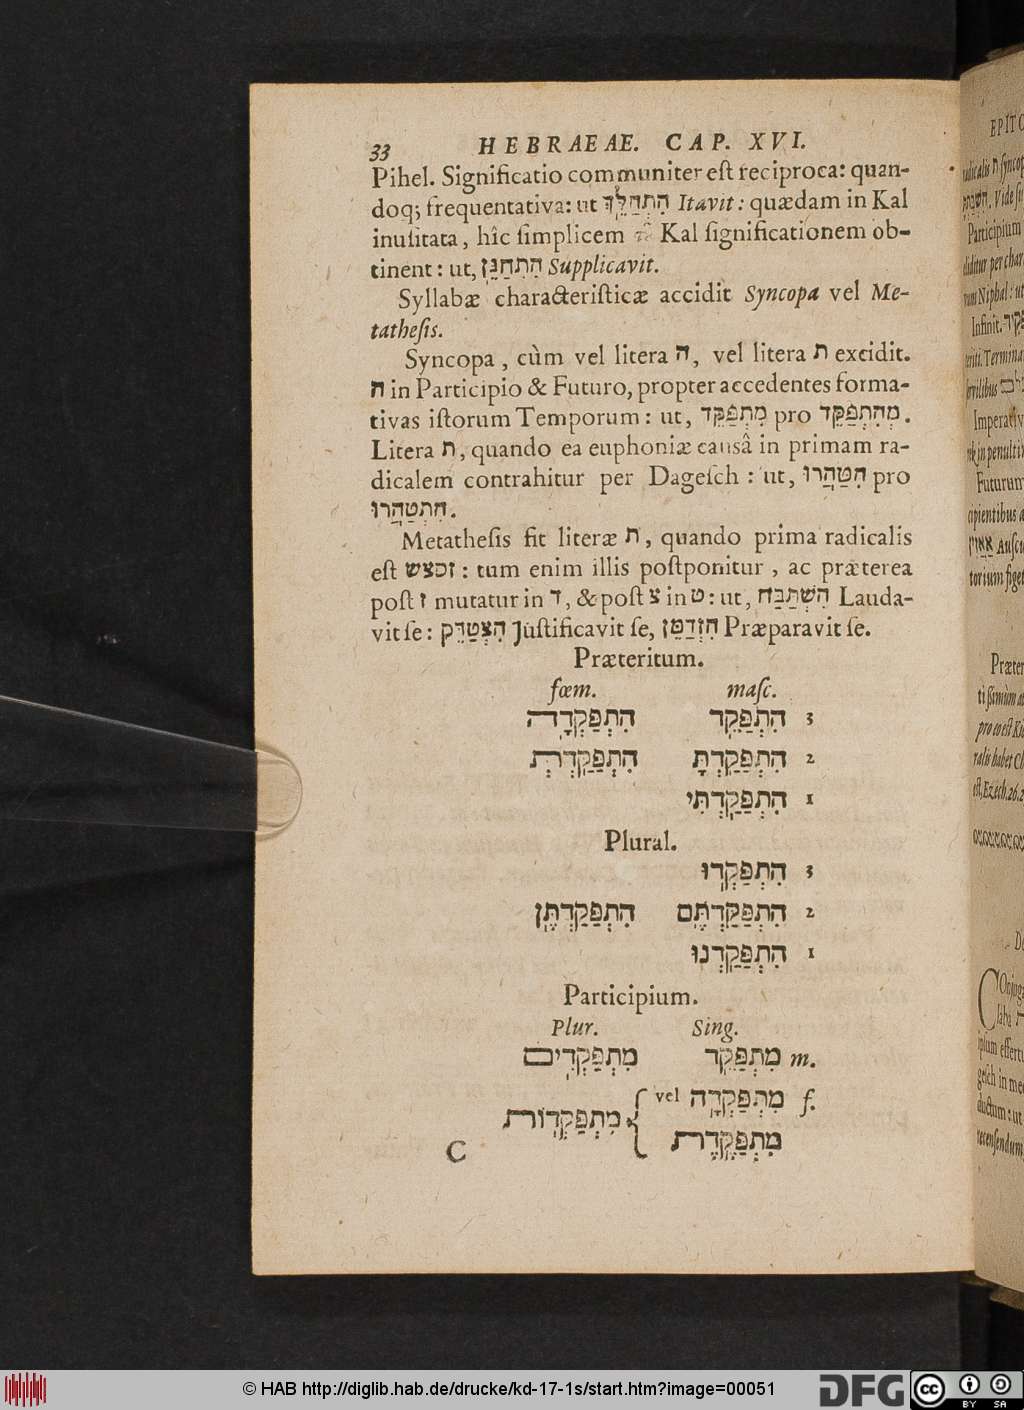 33 HEBRAEAE. CAP. XVI.
Pihel. Significatio communiter eſt reciproca: quan-
doq; frequentativa: ut הִתְהַלֵּךְ Itavit: quædam in Kal
inuſitata, hîc ſimplicem Kal ſignificationem ob-
tinent: ut, הִתְחַנֵּן Supplicavit.
Syllabæ characteriſticæ accidit Syncopa vel Me-
tatheſis.
Syncopa, cùm vel litera ה, vel litera ת excidit.
ה in Participio & Futuro, propter accedentes forma-
tivas iſtorum Temporum: ut, מִתְפַּקֵּד pro מְהִתְפַּקֵּד.
Litera ת, quando ea euphoniæ causâ in primam ra-
dicalem contrahitur per Dageſch: ut, הִטַּהֲרוּ pro
הִתְטַהֲרוּ.
Metatheſis fit literæ ת, quando prima radicalis
eſt זסצש: tum enim illis poſtponitur, ac præterea
poſt ז mutatur in ד, & poſt צ in ט: ut, הִשְׁתַּבַּח Lauda-
vit ſe: הִצְטַדֵּק Juſtificavit ſe, הִזְדַּמֵּן Præparavit ſe.
Præteritum.
fœm. maſc.
3 הִתְפַּקֵּד הִתְפַּקְּדָה
2 הִתְפַּקַּדְתָּ הִתְפַּקַּדְתְּ
1 הִתְפַּקַּדְתִּי
Plural.
3 הִתְפַּקְּדוּ
2 הִתְפַּקַּדְתֶּם הִתְפַּקַּדְתֶּן
1 הִתְפַּקַּדְנוּ
Participium.
Plur. Sing.
m. מִתְפַּקֵּד מִתְפַּקְּדִים
f. מִתְפַּקְּדָה vel
מִתְפַּקְּדוֹת
מִתְפַּקֶּדֶת
C
EPITO
Participium
Infinit.
Imperativ
Futurum
Præter
© HAB http://diglib.hab.de/drucke/kd-17-1s/start.htm?image=00051
DFG
cc BY SA